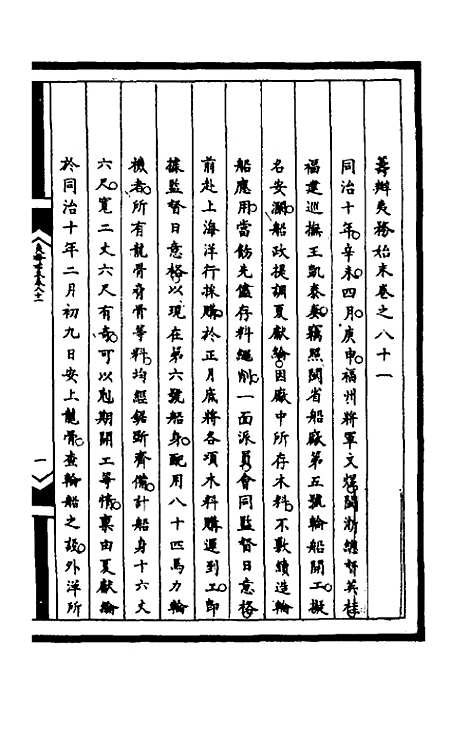 籌辦夷務始末卷之八十一
同治十年。辛未。四月。庚申。福州將軍文煜。閩浙總督英桂。
福建巡撫王凱泰奏。竊照閩省船廠第五號輪船開工。擬
名安瀾。船政提調夏獻綸。因廠中所存木料。不敷續造輪
船應用。當飭先儘存料繩削。一面派員會同監督日意格。
前赴上海洋行採購。於正月底將各項木料購運到工。即
據監督日意格以現在第六號船身。配用八十四馬力輪
機者。所有龍骨脅骨等料。均經鋸斲齊備。計船身十六丈
六尺。寬二丈六尺有奇。可以剋期開工等情。稟由夏獻綸
於同治十年二月初九日安上龍骨。查輪船之設。外洋所
夷務始末卷八十一
一